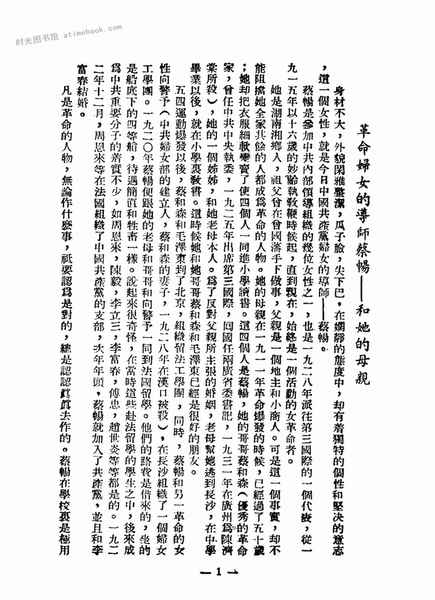 时光图书馆 atimebook.com
革命婦女的導師蔡暢——和她的母親
身材不大，外貌閑雅整潔，瓜子臉，尖下巴，在嫻靜的態度中，却有着獨特的個性和堅决的意志
，這一個女性，就是今日中國共產黨婦女的導師——蔡暢。
蔡暢是參加中共內部領導組織的幾位女性之一，也是一九二八年派往第三國際的一個代表，從一
九一五年以十六歲的妙齡執敎鞭時候起，直到現在，始終是一個活動的女革命者。
她是湖南湘鄉人，祖父曾在曾國藩手下做事，父親是一個地主和小商人。可是這一個事實，却不
能阻擋她全家其餘的人都成爲革命的人物。她的母親在一九一一年革命爆發的時候，已經過了五十歲
；她却把衣服細軟變賣了使四個人一同進小學讀書。這四個人是蔡暢，她的哥哥蔡和森（優秀的革命
家，曾任中共中央執委，一九二五年出席第三國際，回國任兩廣省委書記，一九三一年在廣州爲陳濟
棠所殺），她的一個姊姊，和她老母本人。爲了反對父親所主張的婚姻，老母幫她逃到長沙，在中學
畢業以後，就在小學裏敎書。這時候她和她哥哥蔡和森和毛澤東已經是很好的朋友。
五四運動爆發以後，蔡和森和毛澤東到了北京，組織留法工學團，同時，蔡暢和另一革命的女
性向警予（中共婦女部的建立人，蔡和森的妻子，一九二八年在漢口被殺），在長沙組織了一個婦女
工學團。一九二〇年蔡暢便跟她的老母和哥哥和向警予一同到法國留學。他們的路費是借來的，坐的
是船底下的四等艙，待遇簡直和牲畜一樣。說起來很奇怪，在當時這些赴法留學的學生之中，後來成
爲中共重要分子的着實不少，如周恩來，陳毅，李立三，李富春，傅忠，趙世炎等等都是的。一九二
二年十二月，周恩來等在法國組織了中國共產黨的支部，次年年頭，蔡暢就加入了共產黨，並且和李
富春結婚。
凡是革命的人物，無論作什麽事，祇要認爲是對的，總是認認眞眞去作的。蔡暢在學校裏是極用
— 1 —